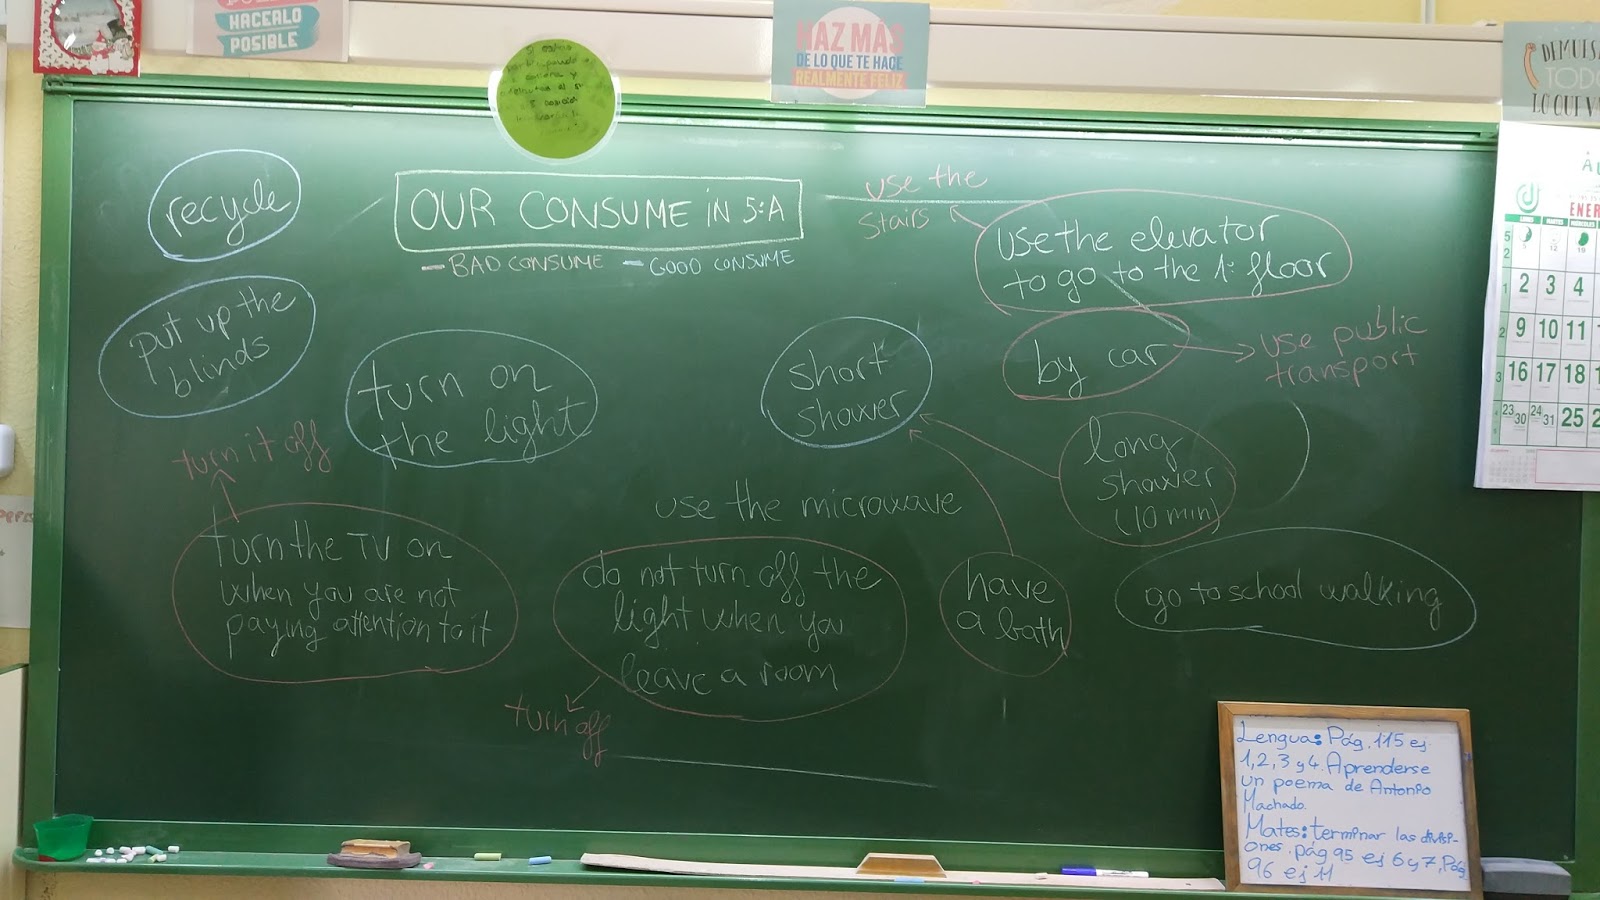 HACERLO
POSIBLE
HAZ MÁS
DE LO QUE TE HACE
REALMENTE FELIZ
DEMUES
TODO
LO QUE VA
recycle
OUR CONSUME iN 5ºA
— BAD CONSUME — GOOD CONSUME
use the
stairs
use the elevator
to go to the 1º floor
put up the
blinds
turn on
the light
short
shower
by car
use public
transport
long
shower
(10 min)
turn it off
turn the TV on
when you are not
paying attention to it
use the microwave
do not turn off the
light when you
leave a room
turn off
have
a bath
go to school walking
ENER
2 3 4
9 10 11
16 17 18
23/30 24/31 25
Lengua: Pág. 115 ej
1, 2, 3 y 4. Aprenderse
un poema de Antonio
Machado.
Mates: terminar las divisi-
ones. pág 95 ej 6 y 7, Pág
96 ej 11